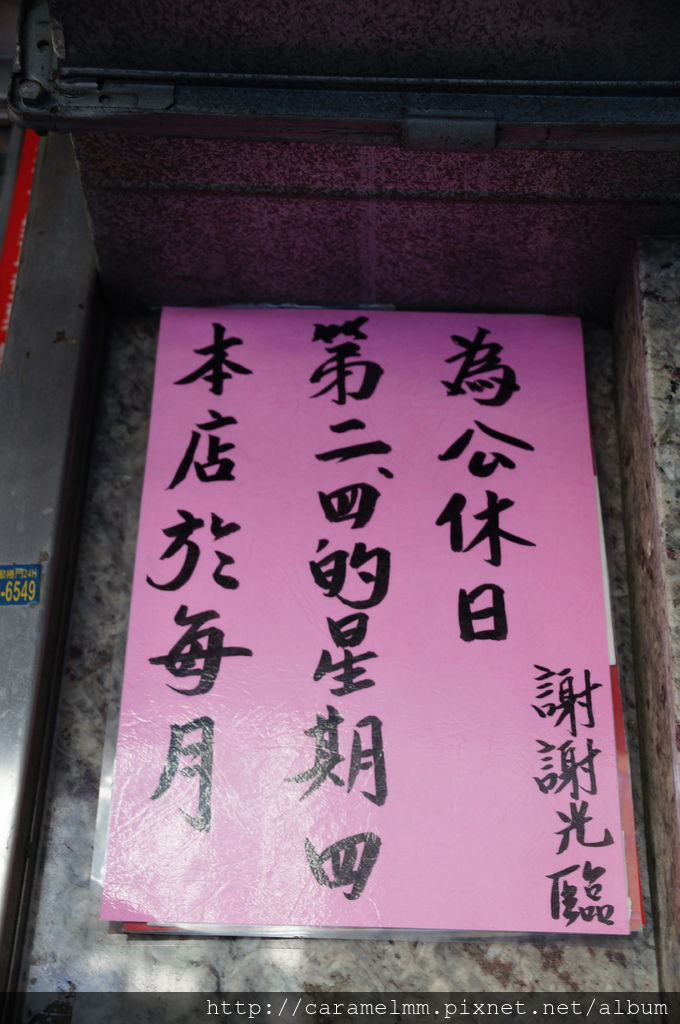 本店於每月
第二、四的星期四
為公休日
謝謝光臨
-6549
http://caramelmm.pixnet.net/album